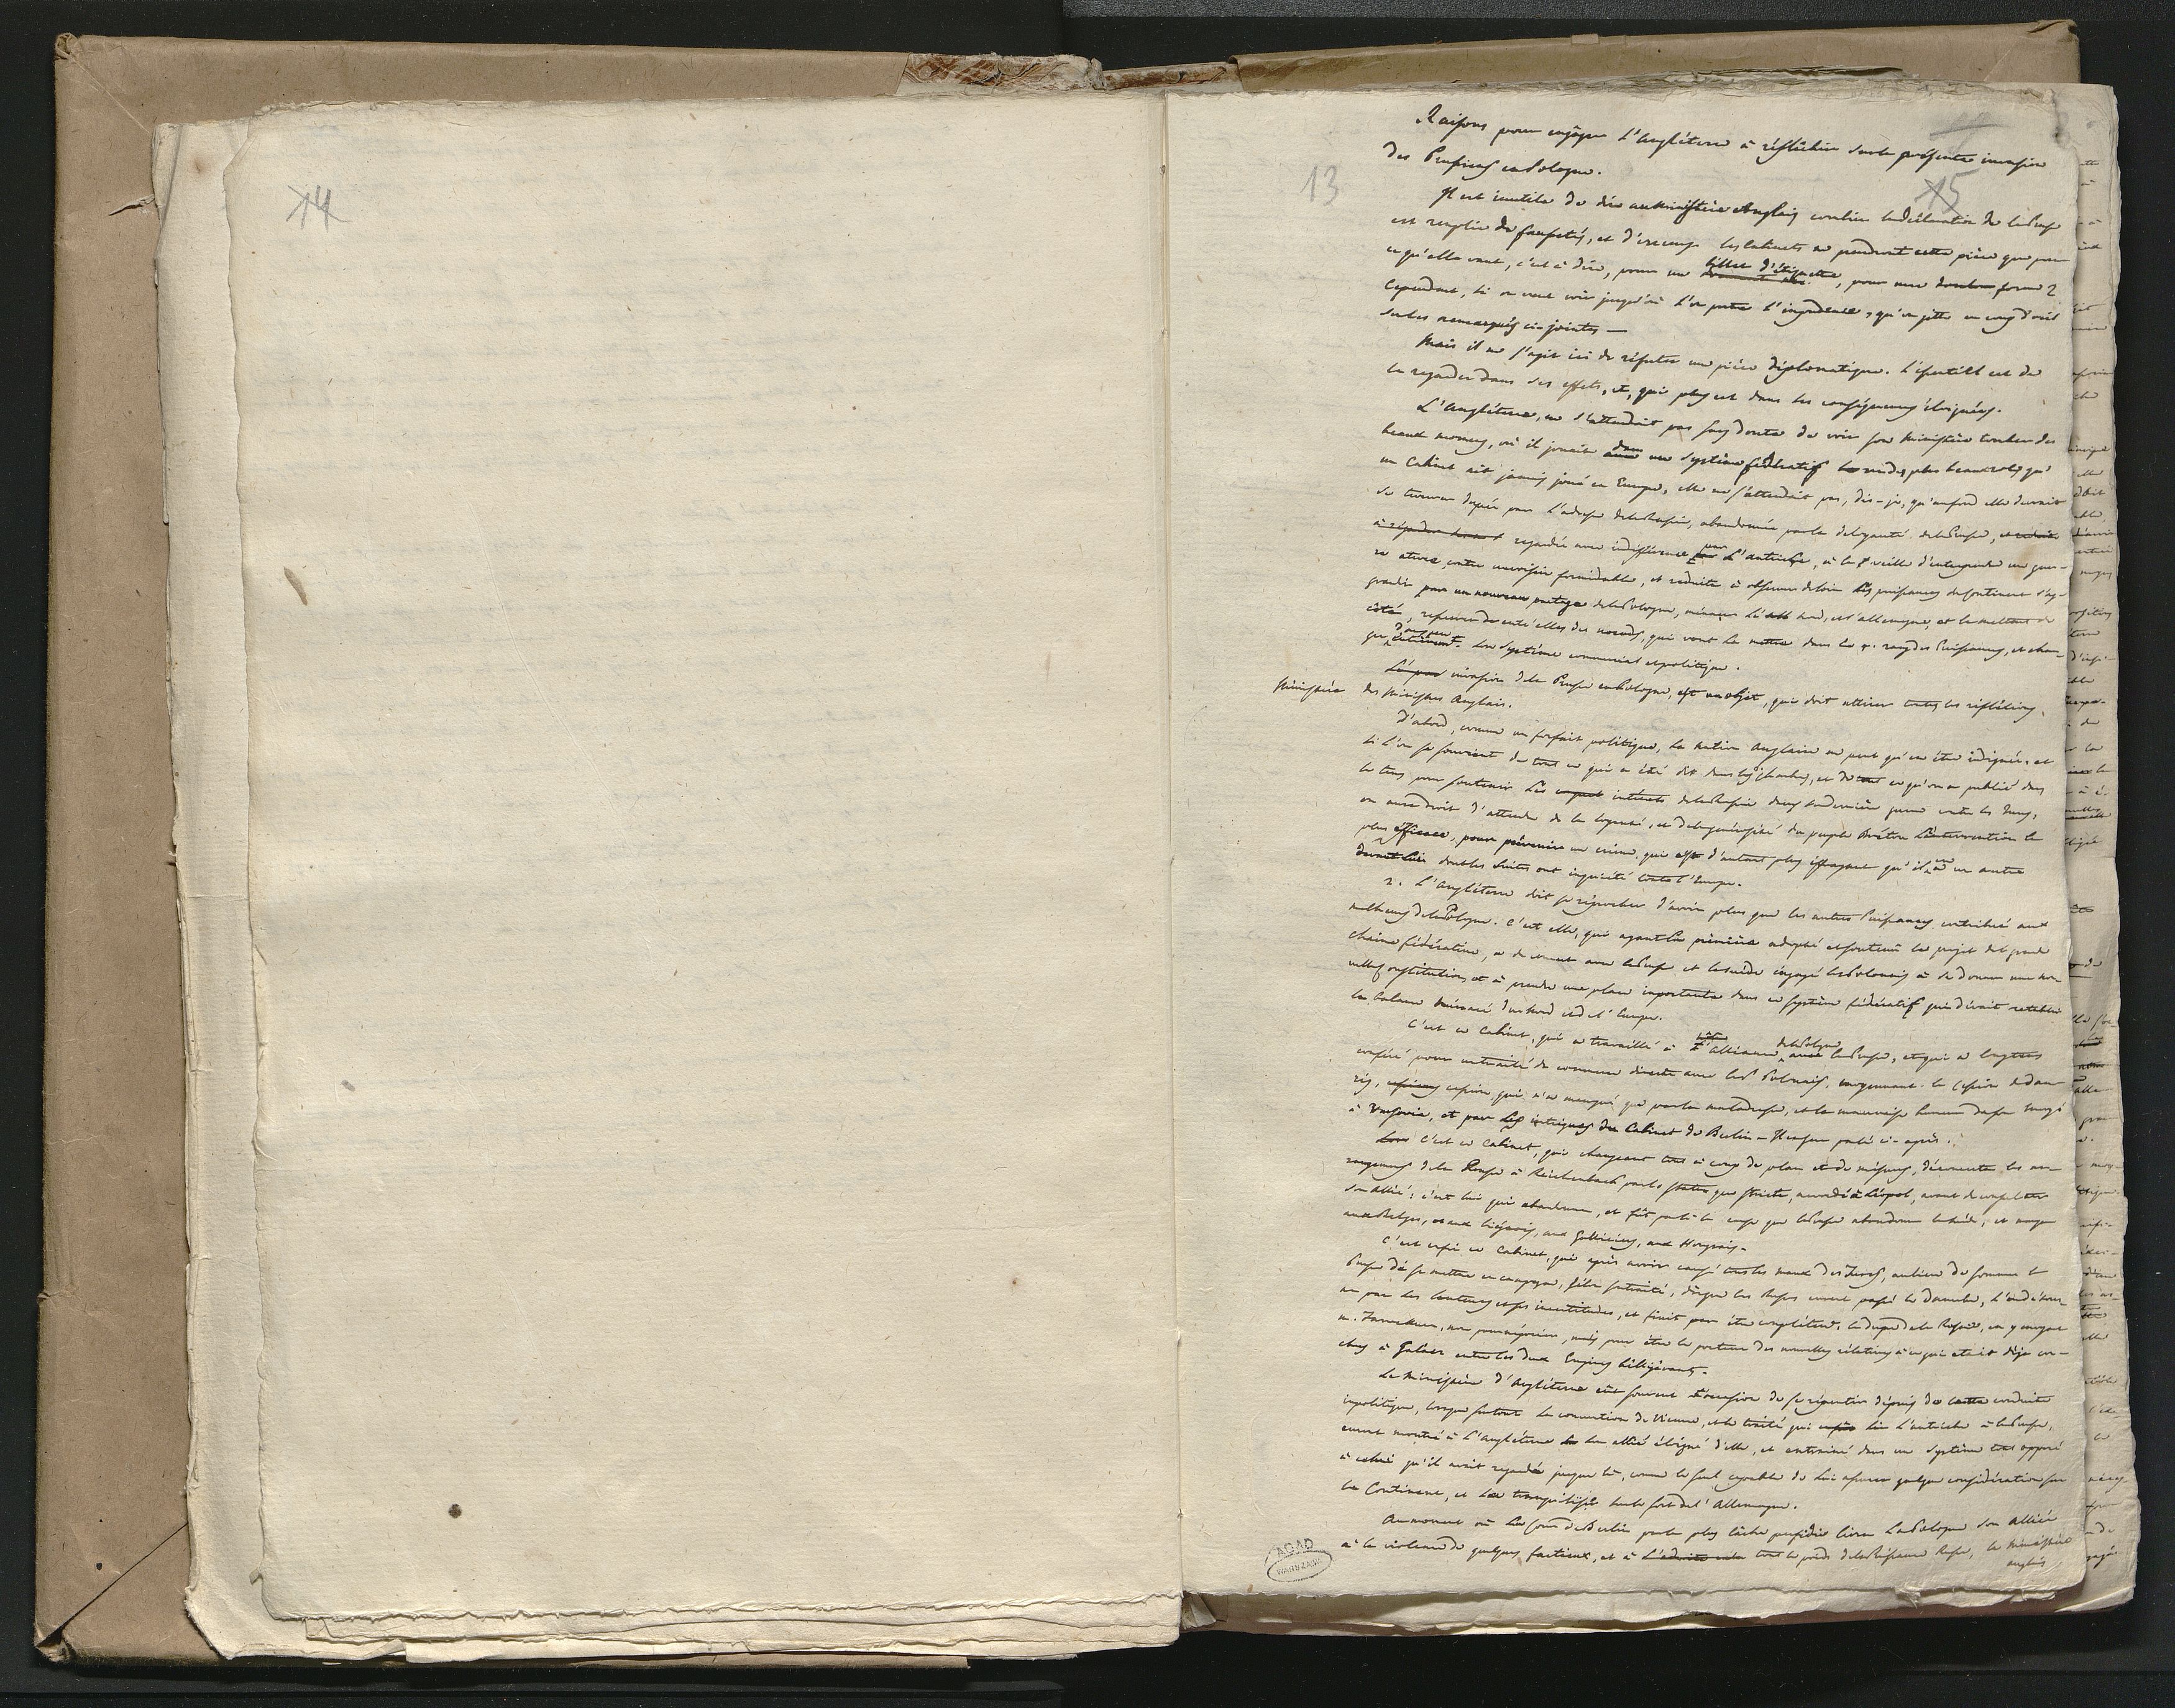 14
13
15
Raisons pour engager l'Angleterre à réfléchir sur la présente invasion
des Prussiens en Pologne.
Il est inutile de dire au ministère Anglais combien la déclaration de la Prusse
est remplie de faussetés, et d'excuses les cabinets ne prendront cette pièce que pour
ce qu'elle vaut, c'est à dire, pour un billet d'étiquette, pour une forme
Cependant, si on veut voir jusqu'où l'on porte l'impudence, qu'on jette un coup d'oeil
sur les remarques ci-jointes —
Mais il ne s'agit ici de réfuter une pièce diplomatique. L'essentiel est de
la regarder dans ses effets, et, qui plus est dans les conséquences éloignées.
L'Angleterre, ne s'attendait pas sans doute de voir son Ministère tomber des
beaux momens, où il jouait dans un système fédératif un des plus beaux roles qu'
un Cabinet ait jamais joué en Europe, elle ne s'attendait pas, dis-je, qu'au fond elle devrait
se trouver dupée par l'adresse de la Russie, abandonnée par la déloyauté de la Prusse,
regardée avec indifférence par l'Autriche, à la veille d'entreprendre une guer-
re contre formidable, et reduite à observer de loin les puissances du Continent s'ag-
grandir par un nouveau partage de la Pologne, menacer le nord, et l'allemagne, et la mettant de
côté, resserrer entr'elles des noeuds, qui vont la mettre dans le rang des Puissances, et chan-
ger son système commercial et politique.
invasion de la Prusse en Pologne, est un objet, qui doit attirer toutes les réfléxions
Ministère
des Ministres Anglais.
D'abord, comme un forfait politique, la nation Anglaise ne peut qu'en être indignée, et
si l'on se souvient de tout ce qui a été dit dans les chambres, et de ce qu'on a publié dans
le tems pour soutenir les intérêts de la Russie dans sa dernière guerre contre les Turcs,
on aura droit d'attendre de la loyauté, et de la générosité du peuple Bréton l'intervention la
plus éfficace, pour prévenir un crime, qui est d'autant plus effrayant qu'il en un autre
dont les suites ont inquiété toute l'Europe.
2. L'Angleterre doit se réprocher d'avoir plus que les autres Puissances contribué aux
malheurs de la Pologne. C'est elle, qui ayant la prémière adopté et soutenu le projet de grande
chaine fédérative, a de concert avec la Prusse et la suède engagé les Polonais à se donner une nou-
velle Constitution, et à prendre une place importante dans ce système fédératif qui devait retablir
la balance du Nord et de l'Europe.
C'est ce Cabinet, qui a travaillé à l'alliance de la Pologne avec la Prusse, et qui a longtems
conféré pour un traité de commerce directe avec les Polonais, moyennant la cession de Dan-
zig, cession, qui n'a manqué que par la maladresse, et la mauvaise humeur de son envoyé
à Varsovie, et par les intrigues du Cabinet de Berlin — Il en sera parlé ci-après.
C'est ce Cabinet, qui changeant tout à coup de plan et de mésures, déconcerta les ar-
rangemens de la Prusse à Reichenbach par le status quo stricte, accordé à Léopol, avant de consulter
son allié; c'est lui qui abandonna, et fût par là la cause que la Prusse abandonna la Suède, et manqua
aux Belges, et aux Liégeois, aux Galliciens, aux Hongrois.
C'est enfin ce Cabinet, qui après avoir causé tous les maux des Turcs, au lieu de sommer la
Prusse de se mettre en campagne, selon son traité, dès que les Russes eurent passé le Danube, l'en détour-
na par ses lenteurs et ses incertitudes, et finit par être complètement la dupe de la Russie, en y envoyant
m. Fawkener, non pour négocier, mais pour être le porteur des nouvelles rélatives à ce qui etait déja con-
clus à Galacz entre les deux Empires bélligérants.
Le Ministère d'Angleterre eut souvent l'occasion de se répentir dépuis de cette conduite
impolitique, lorsque surtout la convention de Vienne, et le traité qui lia l'autriche à la Prusse,
eurent montré à l'Angleterre son allié éloigné d'elle, et entrainé dans un système tout opposé
à celui qu'il avait regardé jusque là, comme le seul capable de lui assurer quelque considération sur
le Continent, et la tranquilliser sur le sort de l'Allemagne.
Au moment où la Cour de Berlin par la plus lâche perfidie livra la Pologne son alliée
à la violence de quelques factieux, et à tout le poids de la Puissance Russe, le Ministère
anglais
AGAD
WARSZAWA